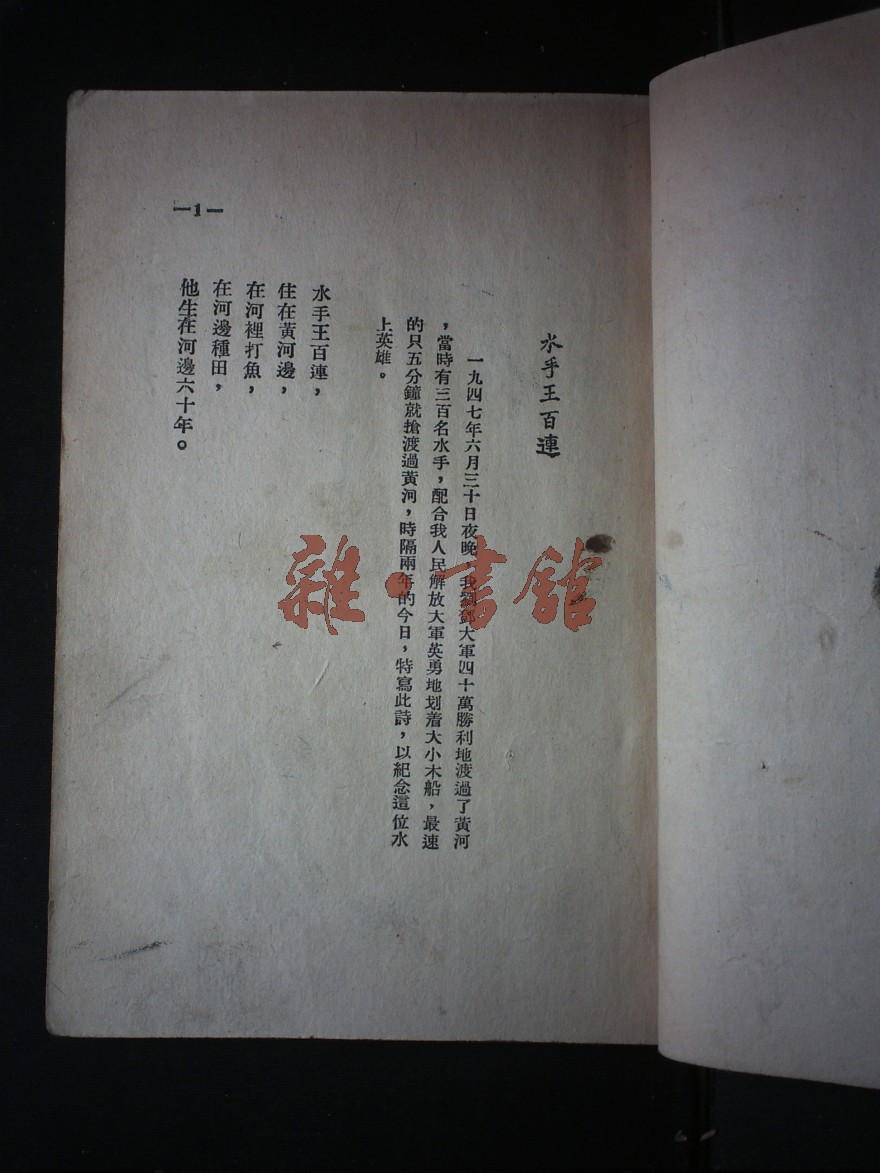 水手王百連
一九四七年六月三十日夜晚，我劉鄧大軍四十萬勝利地渡過了黃河
，當時有三百名水手，配合我人民解放大軍英勇地划着大小木船，最速
的只五分鐘就搶渡過黃河，時隔兩年的今日，特寫此詩，以紀念這位水
上英雄。
水手王百連，
住在黃河邊，
在河裡打魚，
在河邊種田，
他生在河邊六十年。
—1—
雜·書館